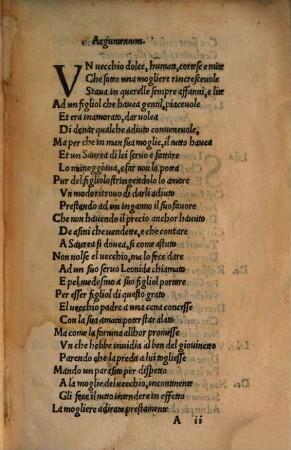 Argumentum.
VN uecchio dolce, human, cortese e mite
Che sotto una mogliere rincresceuole
Staua in querelle sempre affanni, e lite
Ad un figliol che hauea gentil, piaceuole
Et era inamorato, dar uolea
Di denar qualche adiuto conueneuole,
Ma per che in man sua moglie, il tutto hauea
Et un Saurea di lei seruo e fattore
Lo maneggiaua, e far non la potea
Pur del figliolo stringendolo lo amore
Vn modo ritrouo di darli adiuto
Prestando ad un inganno il suo fauore
Che non hauendo il precio anchor hauuto
De asini che uendette, e che contare
A Saurea si douea, si come astuto
Non uolse el uecchio, ma lo fece dare
Ad un suo seruo Leonida chiamato
E pel medesmo a suo figliol portare
Per esser figliol di questo grato
El uecchio padre a una cena concesse
Con la sua amata poter star alato
Ma come la fortuna allhor promesse
Vn che hebbe inuidia al ben del giouineto
Parendo che la preda a lui togliesse
Mando un parasito per dispetto
A la moglie del uecchio, incontinente
Gli fece il tutto intendere in effetto
La mogliere adirata prestamente
A ii